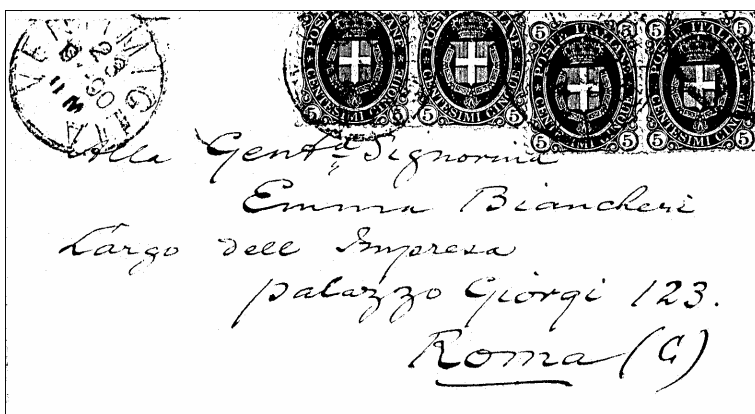 VENTIMIGLIA
5 POSTE ITALIANE 5
5 CENTESIMI CINQUE 5
5 POSTE ITALIANE 5
5 CENTESIMI CINQUE 5
5 POSTE ITALIANE 5
5 CENTESIMI CINQUE 5
5 POSTE ITALIANE 5
5 CENTESIMI CINQUE 5
Alla Gent.a Signorina
Emma Biancheri
Largo dell Impresa
palazzo Giorgi 123.
Roma (G)